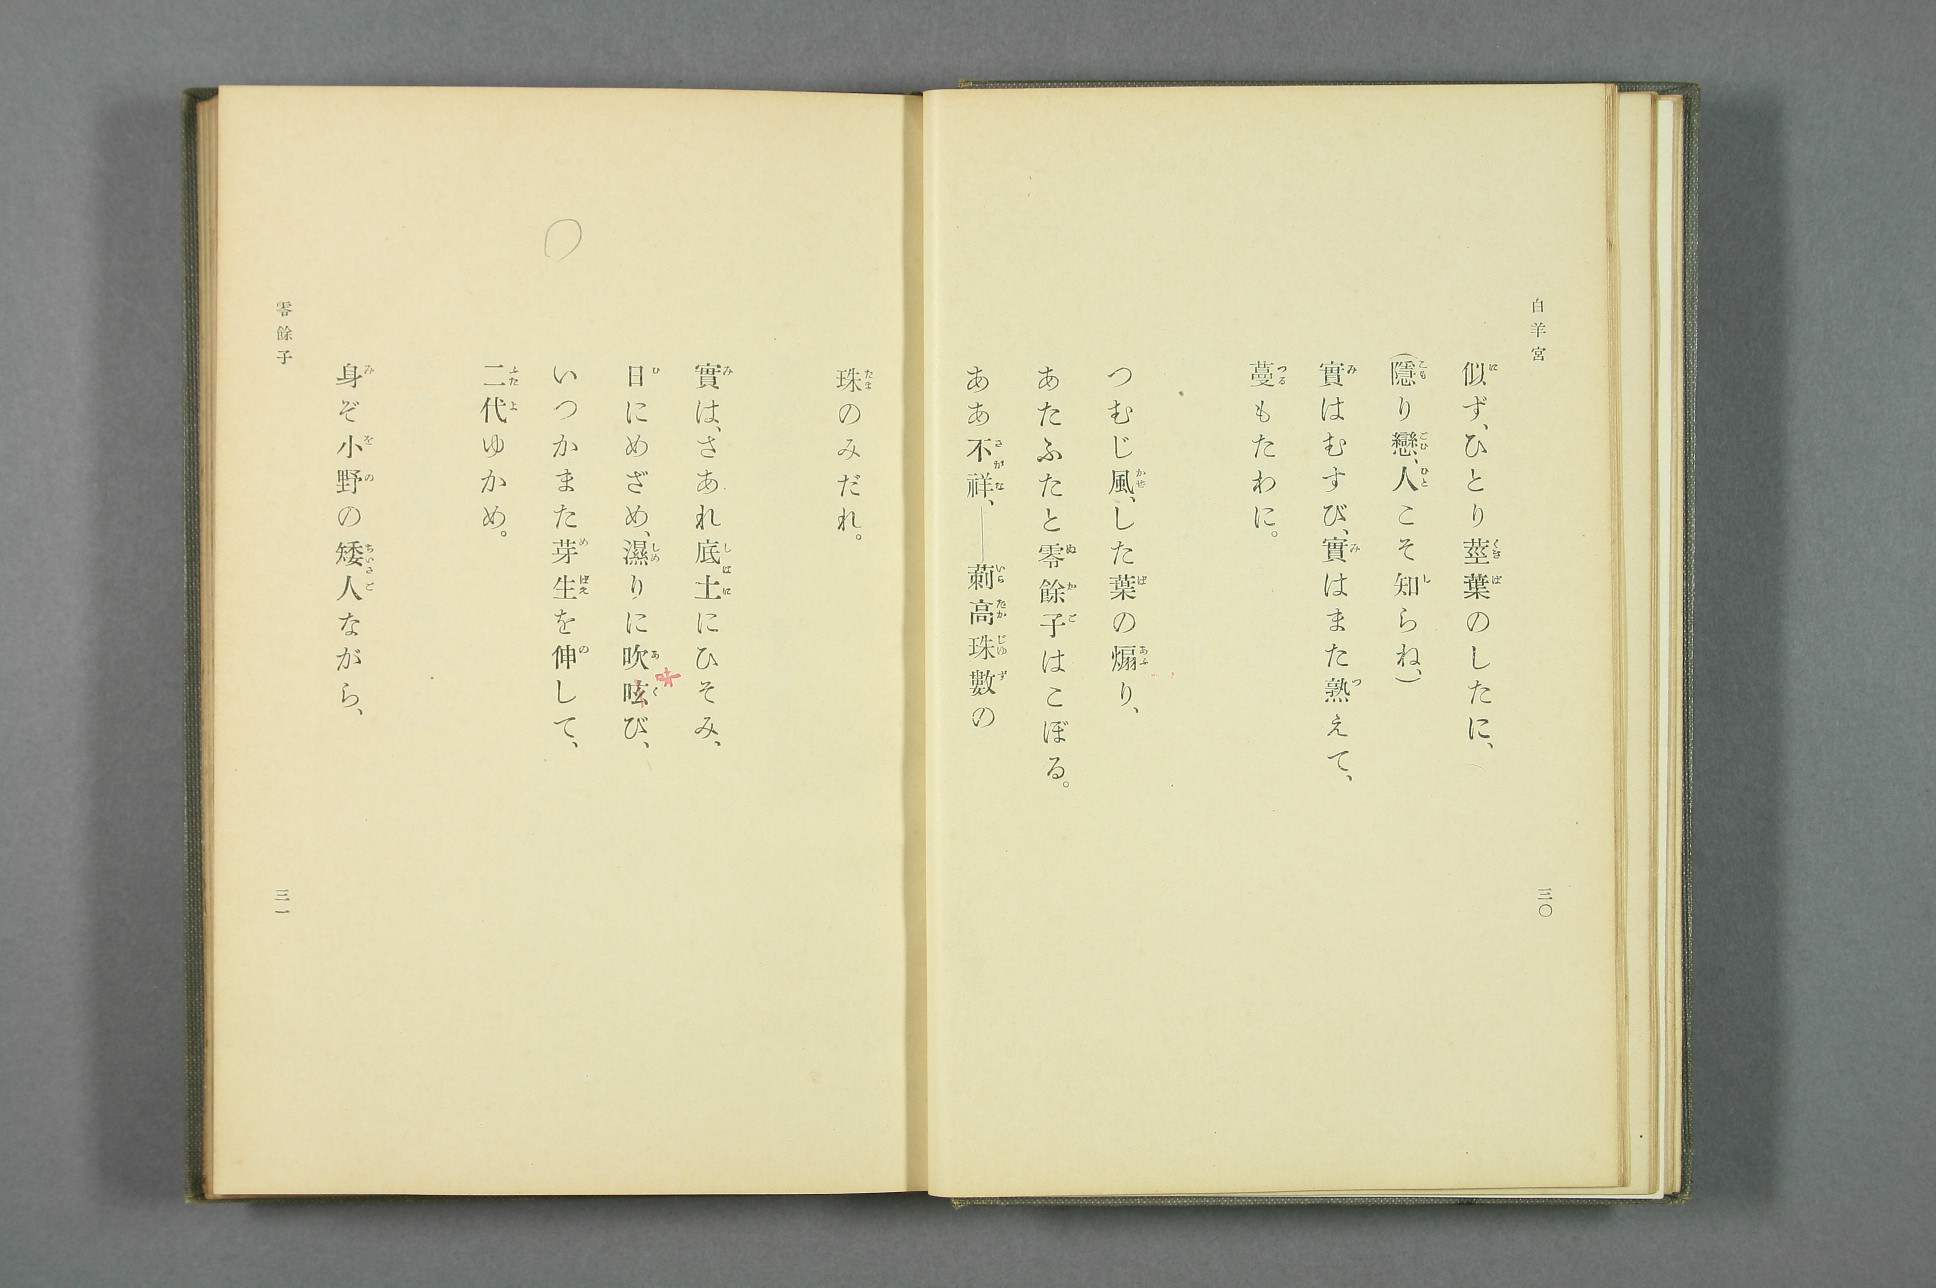 白羊宮
似ず、ひとり莖葉のしたに、
(隱り戀、人こそ知らね、)
實はむすび、實はまた熟えて、
蔓もたわに。
つむじ風、した葉の煽り、
あたふたと零餘子はこぼる。
ああ不祥、――莿高珠數の
三〇
珠のみだれ。
實は、さあれ底土にひそみ、
日にめざめ、濕りに吹呟び、
いつかまた芽生を伸して、
二代ゆかめ。
身ぞ小野の矮人ながら、
零餘子
三一